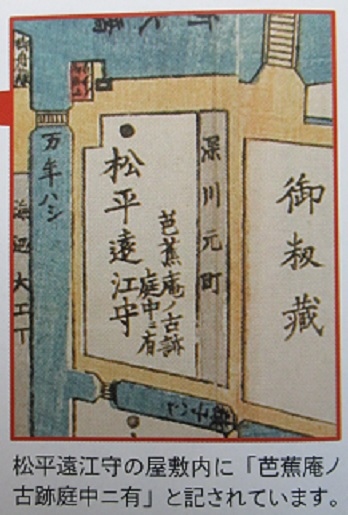 万年ハシ
海辺大工丁
松平遠江守
芭蕉庵ノ古跡
庭中ニ有
深川元町
御籾蔵
松平遠江守の屋敷内に「芭蕉庵ノ
古跡庭中ニ有」と記されています。